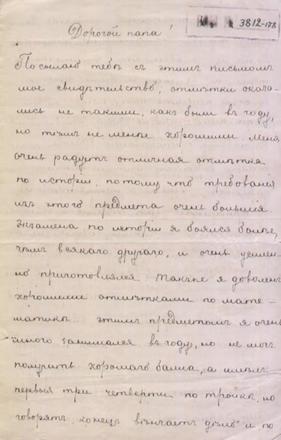 3812-178.
Дорогой папа!
Посылаю тебѣ съ этимъ письмомъ
мое свидѣтельство, отмѣтки оказа-
лись не такими, какъ были въ году,
но тѣмъ не менѣе хорошими. Меня
очень радуетъ отличная отмѣтка
по исторіи, потому что требованія
изъ этого предмета очень большія.
Экзамена по исторіи я боялся больше,
чѣмъ всякаго другаго, и очень усиленно
но приготовлялся. Также я доволенъ
хорошими отмѣтками по мате-
матикѣ. Этимъ предметомъ я очень
много занимался въ году, но не могъ
получить хорошаго балла, а имѣлъ
первыя три четверти по тройкѣ, но
говорятъ, конецъ вѣнчаетъ дѣло и по